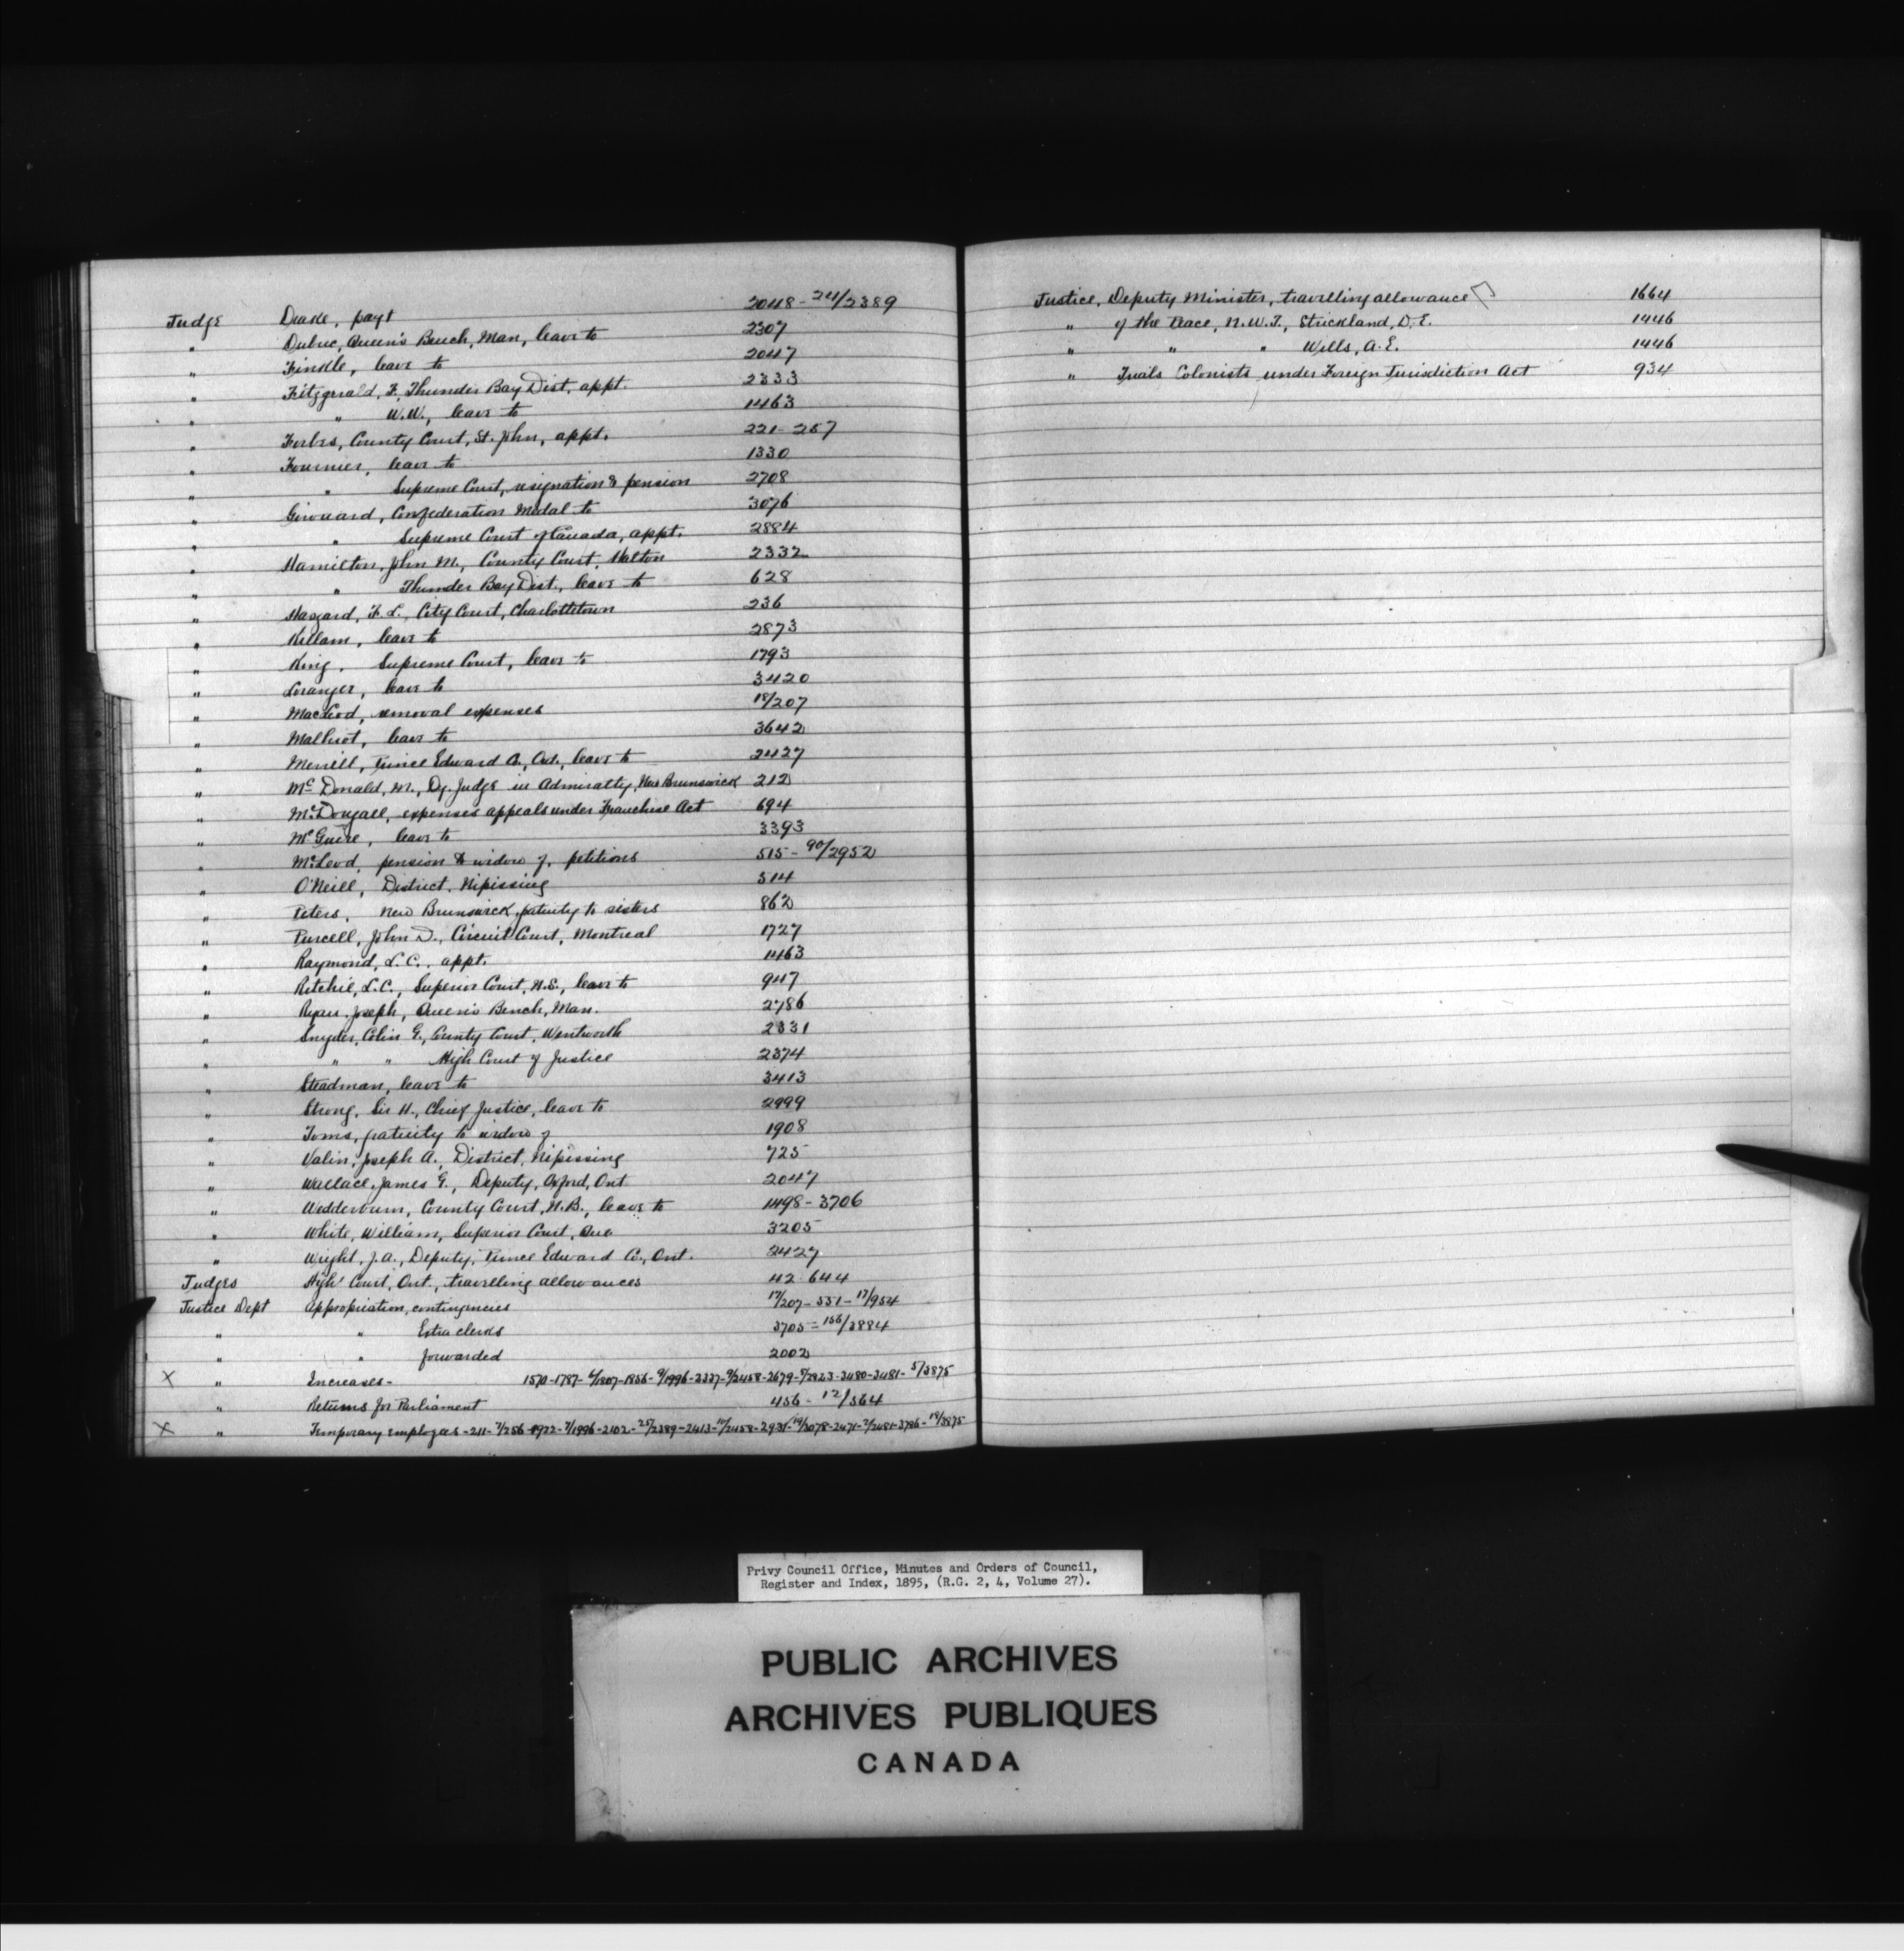 Judge Drake, payt 2048 - 24/2389
" Dubuc, Queen's Bench, Man, leave to 2307
" Finkle, leave to 2047
" Fitzgerald, F. Thunder Bay Dist, appt. 2333
" " W.W., leave to 1463
" Forbes, County Court, St. John, appt. 221-257
" Fournier, leave to 1330
" " Supreme Court, resignation & pension 2708
" Girouard, Confederation Medal to 3076
" " Supreme Court of Canada, appt. 2884
" Hamilton, John M., County Court, Halton 2332
" " Thunder Bay Dist., leave to 628
" Haszard, F. L., City Court, Charlottetown 236
" Killam, leave to 2873
" King, Supreme Court, leave to 1793
" Loranger, leave to 3420
" MacLeod, removal expenses 18/207
" Malhiot, leave to 3642
" Merrill, Prince Edward Co., Ont., leave to 2427
" McDonald, M., Dy. Judge in Admiralty, New Brunswick 212
" McDougall, expenses appeals under Franchise Act 694
" McGuire, leave to 3393
" McLeod, pension to widow of, petitions 515 - 90/2952
" O'Neill, District, Nipissing 514
" Peters, New Brunswick, gratuity to sisters 862
" Purcell, John D., Circuit Court, Montreal 1727
" Raymond, L. C., appt. 1463
" Ritchie, L.C., Superior Court, N.S., leave to 947
" Ryan, Joseph, Queen's Bench, Man. 2786
" Snyder, Colin G., County Court, Wentworth 2331
" " " High Court of Justice 2374
" Steadman, leave to 3413
" Strong, Sir H., Chief Justice, leave to 2999
" Toms, gratuity to widow of 1908
" Valin, Joseph A., District, Nipissing 725
" Wallace, James G., Deputy, Oxford, Ont 2047
" Wedderburn, County Court, N.B., leave to 1498 - 3706
" White, William, Superior Court, Que 3205
" Wright, J.A., Deputy, Prince Edward Co., Ont. 2427
Judges High Court, Ont., travelling allowances 42 644
Justice Dept Appropriation, contingencies 17/207 - 551 - 17/954
" " Extra clerks 3705 = 156/3884
" " forwarded 2002
X " Increases - 1570-1787- 6/1807-1856- 9/1996-2337- 9/2458-2679- 9/2823-3480-3481- 5/3875
" Returns for Parliament 456 - 12/564
X " Temporary employees - 211- 7/256-1922- 7/1996-2102- 25/2389-2413- 10/2458-2931- 14/3078-2471- 2/3481-3786- 18/3875
Justice, Deputy Minister, travelling allowance 1664
" of the Peace, N.W.T., Strickland, D.E. 1446
" " " Wills, A.E. 1446
" Trials Colonists under Foreign Jurisdiction Act 934
Privy Council Office, Minutes and Orders of Council,
Register and Index, 1895, (R.G. 2, 4, Volume 27).
PUBLIC ARCHIVES
ARCHIVES PUBLIQUES
CANADA